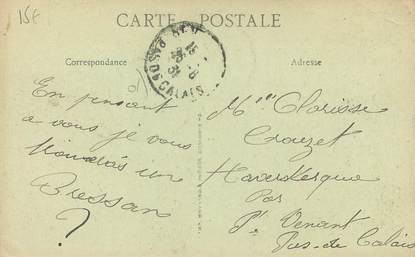 15€
CARTE POSTALE
Correspondance
Adresse
PAS DE CALAIS
En pensant
a vous je vous
une
Bressan
?
Mlle Clarisse
Crouzet
Haverskerque
Par
St. Venant
Pas-de-Calais